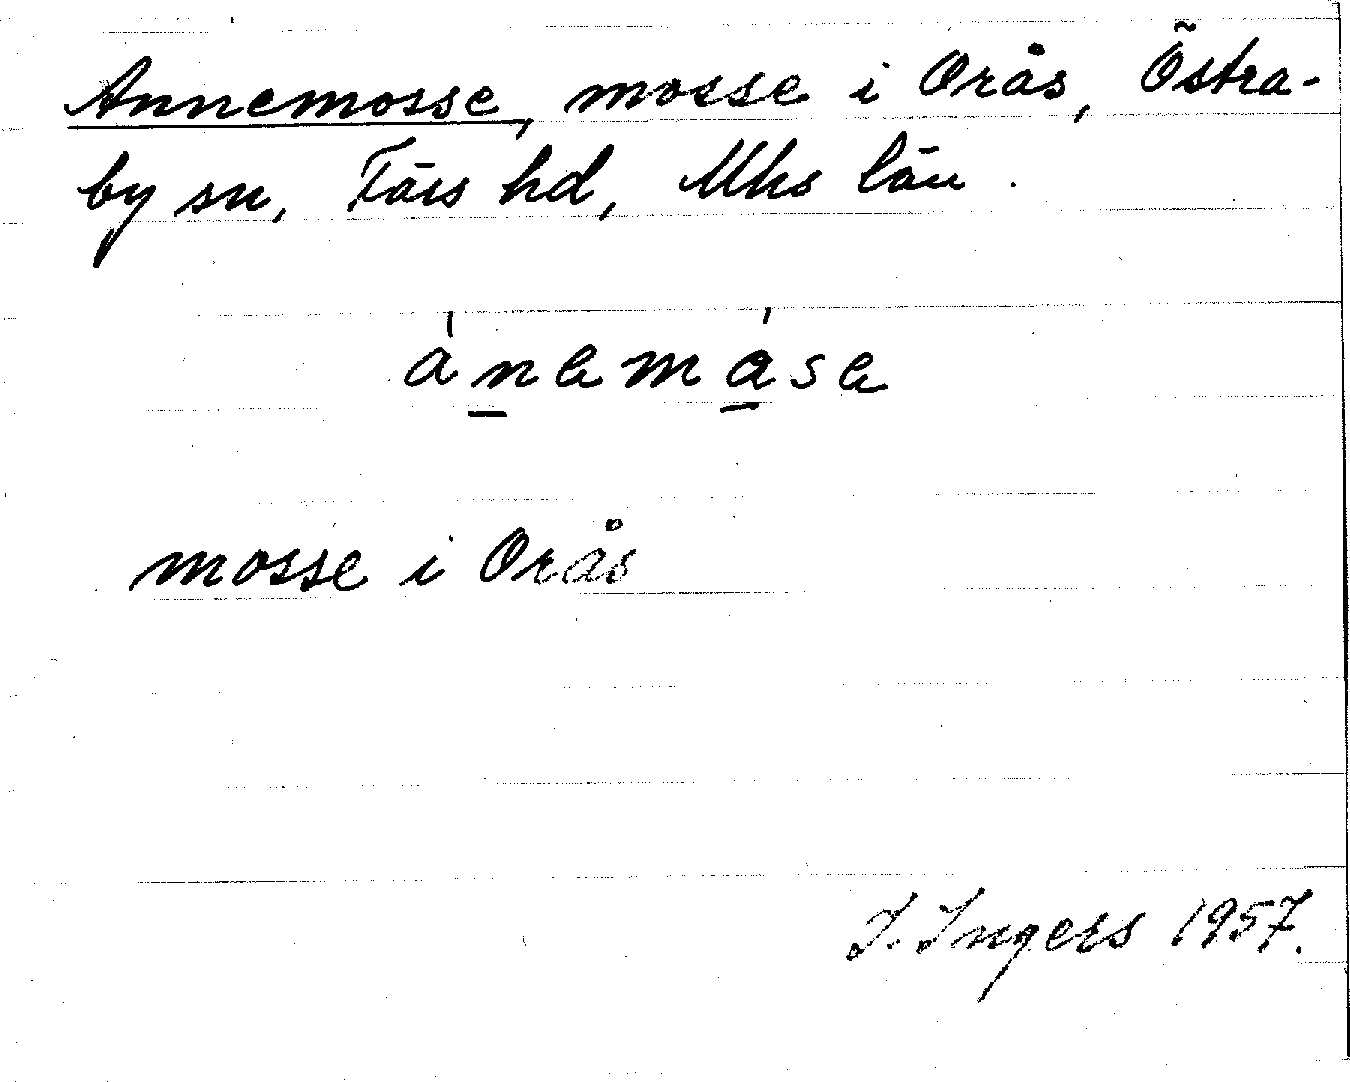 Annemosse, mosse i Orås, Östra-
by sn, Färs hd, Mhs län.
ánemåse
mosse i Orås
I. Ingers 1957.